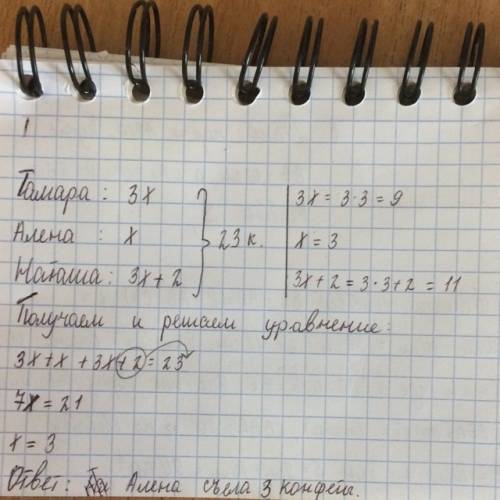 1
Тамара: 3x
Алена: x
Наташа: 3x+2
23 к.
3x = 3·3 = 9
x = 3
3x+2 = 3·3+2 = 11
Получаем и решаем уравнение:
3x+x+3x+2=23
7x=21
x=3
Ответ: Алена съела 3 конфеты.